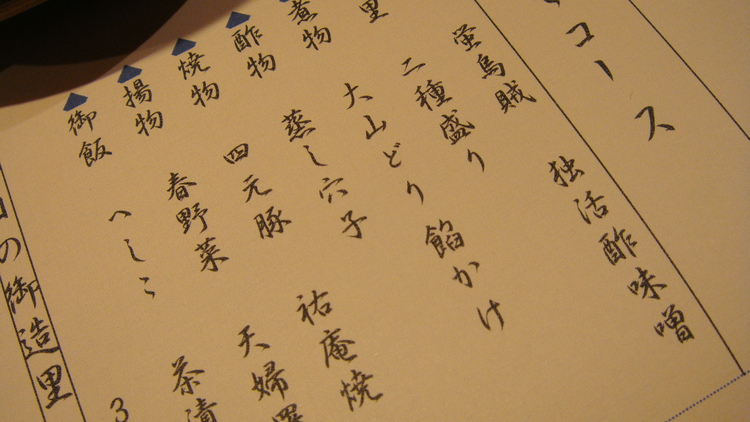 コース
蛍烏賊 独活酢味噌
里 二種盛り
煮物 大山どり 餡かけ
酢物 蒸し穴子
焼物 四元豚 祐庵焼
揚物 春野菜 天婦羅
御飯 へしこ 茶漬
3
の御造里